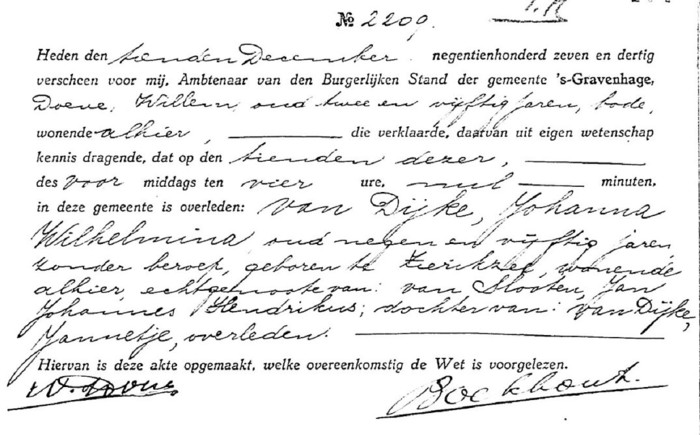 № 2209.
Heden den tienden December negentienhonderd zeven en dertig
verscheen voor mij, Ambtenaar van den Burgerlijken Stand der gemeente 's-Gravenhage,
Doeve, Willem, oud twee en vijftig jaren, bode,
wonende alhier, die verklaarde, daarvan uit eigen wetenschap
kennis dragende, dat op den tienden dezer,
des voor middags ten vier ure, nul minuten,
in deze gemeente is overleden: van Dijke, Johanna
Wilhelmina, oud negen en vijftig jaren,
zonder beroep, geboren te Zierikzee, wonende
alhier, echtgenoote van: van Slooten, Jan
Johannes Hendrikus; dochter van: van Dijke,
Jannetje, overleden.
Hiervan is deze akte opgemaakt, welke overeenkomstig de Wet is voorgelezen.
W. Doeve Boekhout.